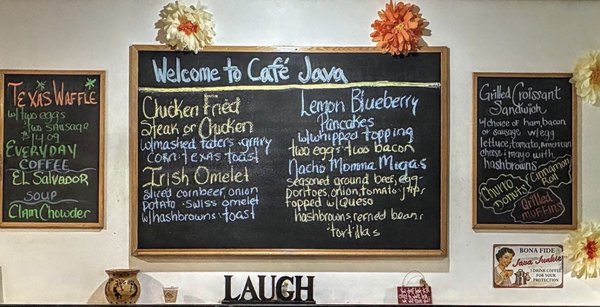 Texas Waffle
w/two eggs
two sausage
$14.09
Everyday
Coffee
El Salvador
Soup
Clam Chowder
Welcome to Café Java
Chicken Fried
Steak or Chicken
w/mashed taters · gravy
corn · Texas toast
Irish Omelet
sliced corn beef, onion
potato · swiss omelet
w/hashbrowns · toast
Lemon Blueberry
Pancakes
w/whipped topping
two eggs · two bacon
Nacho Momma Migas
seasoned ground beef, egg
potatoes, onion, tomato
topped w/Queso
hashbrowns, refried beans
tortillas
Grilled Croissant
Sandwich
w/choice of ham, bacon
or sausage w/egg
lettuce, tomato, american
cheese & mayo with
hashbrowns
Churro & Cinnamon Roll
Donuts
Grilled
Muffins
LAUGH
BONA FIDE
Java Junkie
I DRINK COFFEE
FOR YOUR
PROTECTION